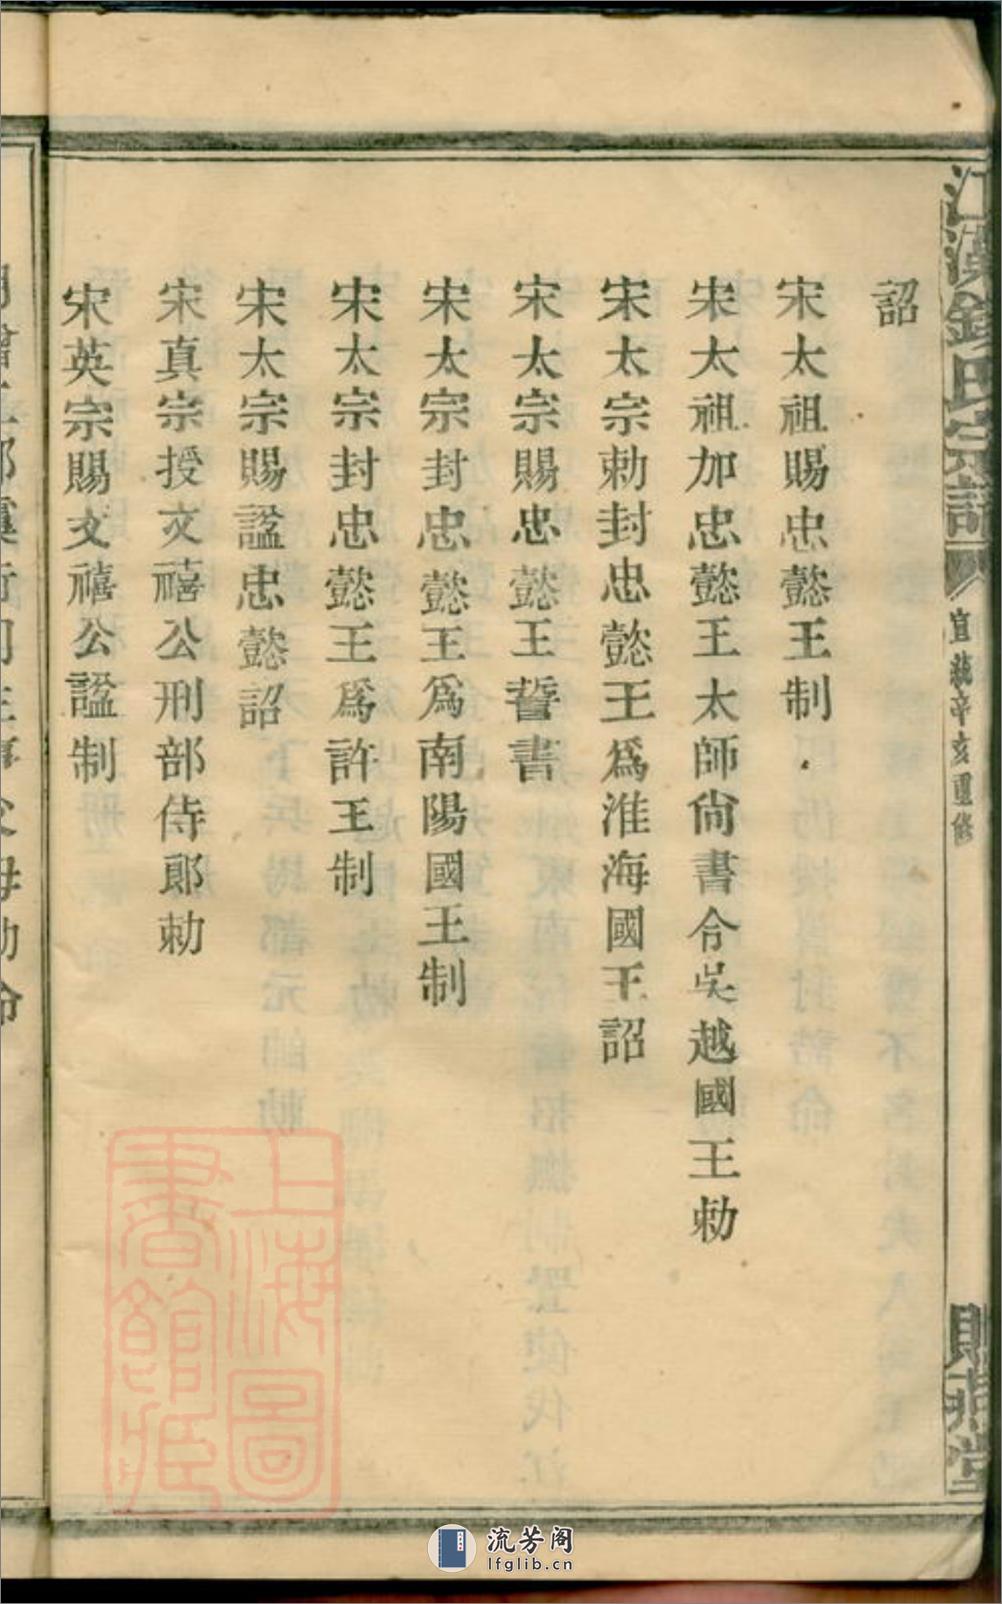 江漢錢氏宗譜
宣統辛亥重修
貽燕堂
詔
宋太祖賜忠懿王制
宋太祖加忠懿王太師尙書令吳越國王勅
宋太宗勅封忠懿王爲淮海國王詔
宋太宗賜忠懿王誓書
宋太宗封忠懿王爲南陽國王制
宋太宗封忠懿王爲許王制
宋太宗賜諡忠懿詔
宋真宗授文禧公刑部侍郎勅
宋英宗賜文禧公諡制
上海圖書館藏
流芳阁
lfglib.cn